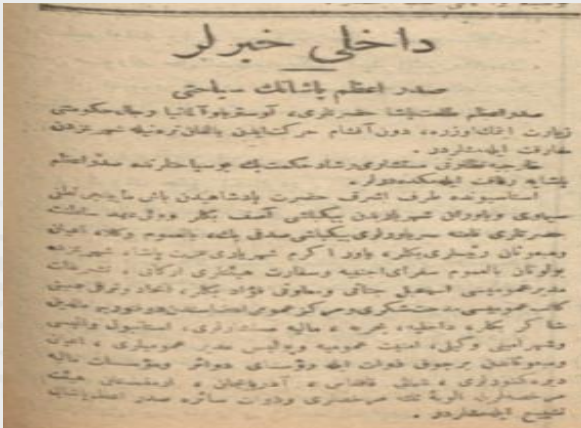 داخلی خبرلر
صدر اعظم پاشانك سیاحتی
صدراعظم طلعت پاشا حضرتلری، آوستریا و آلمانیا رجال حکومتنی
زیارت ایتمك اوزره، دون آقشام حرکت ایدن بالقان ترنیله شهرمزدن
مفارقت ایلمشلردر.
خارجیه نظارتی مستشاری رشاد حکمت بك بو سیاحتلرنده صدر اعظم
پاشایه رفاقت ایلمکده درلر.
استاسیونده طرف اشرف حضرت پادشاهیدن باش مابینجی
و یاوران شهریاریدن بیکباشی آصف بکلر
حضرتلری نامنه سریاورلری بیکباشی صدقی بك، بالعموم وکلا، اعیان
و مبعوثان رئیسلری بکلر، یاور اکرم شهریاری عزت پاشا، شهرمزده
بولونان بالعموم سفرای اجنبیه و سفارت هیئتلری ارکانی، تشریفات
مدیر عمومیسی اسمعیل جنانی و معاونی فؤاد بکلر، اتحاد و ترقی جمعیتی
کاتب عمومیسی مدحت شکری و مرکز عمومی اعضاسندن
بکلر، داخلیه، بحریه، مالیه مستشارلری، استانبول والیسی
و شهر امینی وکیلی، امنیت عمومیه و پولیس مدیر عمومیلری، اعیان
و مبعوثاندن برچوق ذوات ایله رؤسای دوائر و مؤسسات مالیه
دیرکتورلری، شمالی قافقاس، آذربایجان، ارمنستان هیئت
مرخصه‌لری و ذوات سائره صدر اعظم پاشایه
تشییع ایلمشلردر.